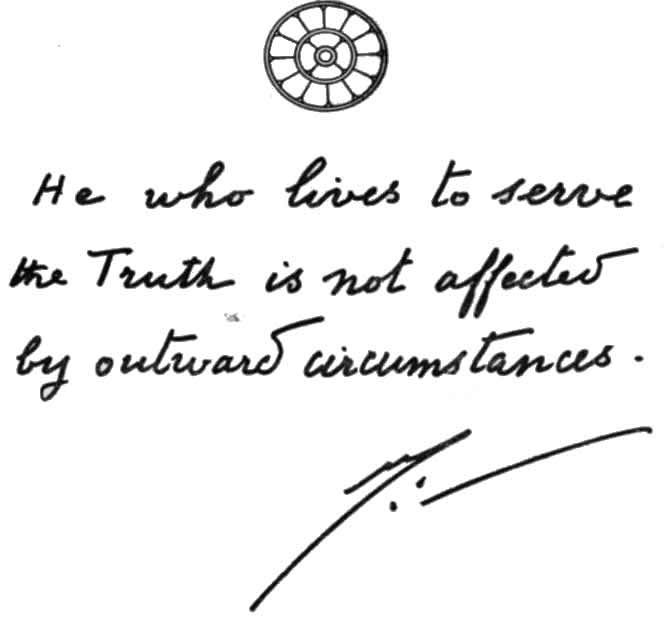 He who lives to serve
the Truth is not affected
by outward circumstances.